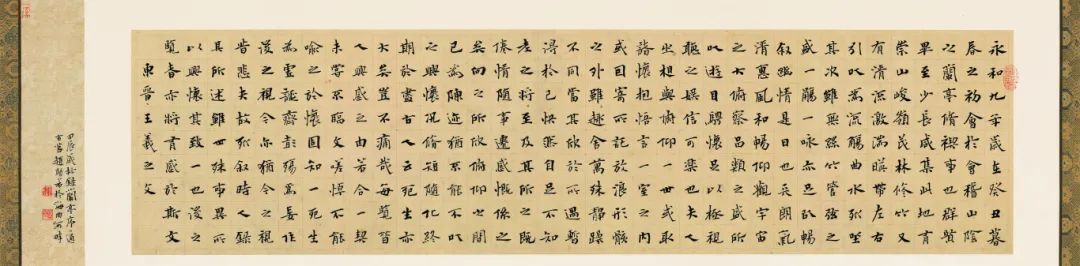 永和九年歲在癸丑暮
春之初會于會稽山陰
之蘭亭脩禊事也群賢
畢至少長咸集此地有
崇山峻嶺茂林修竹又
有清流激湍暎帶左右
引以為流觴曲水列坐
其次雖無絲竹管弦之
盛一觴一詠亦足以暢
叙幽情是日也天朗氣
清惠風和暢仰觀宇宙
之大俯察品類之盛所
以遊目騁懷足以極視
聽之娛信可樂也夫人
之相與俯仰一世或取
諸懷抱悟言一室之內
或因寄所託放浪形骸
之外雖趣舍萬殊靜躁
不同當其欣於所遇暫
得於己快然自足不知
老之將至及其所之既
惓情隨事遷感慨係之
矣向之所欣俯仰之間
已為陳迹猶不能不以
之興懷況脩短隨化終
期於盡古人云死生亦
大矣豈不痛哉每覽昔
人興感之由若合一契
未嘗不臨文嗟悼不能
喻之於懷固知一死生
為虛誕齊彭殤為妄作
後之視今亦猶今之視
昔悲夫故列叙時人錄
其所述雖世殊事異所
以興懷其致一也後之
覽者亦將有感於斯文
東晉王羲之文
錄蘭亭序一通
古莒趙